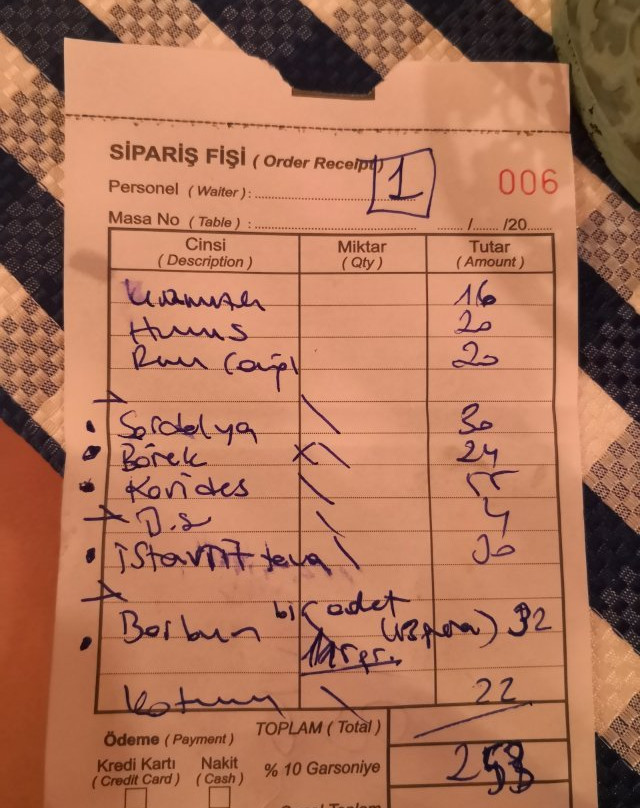 SİPARİŞ FİŞİ ( Order Receipt )
1
006
Personel ( Waiter ) :
Masa No ( Table ) : / /20
Cinsi Miktar Tutar
( Description ) ( Qty ) ( Amount )
16
Humus 20
20
Sardalya 30
Börek 24
Karides
D.S 4
İstavrit tava 30
Barbun bir adet
32
22
TOPLAM ( Total )
Ödeme ( Payment )
Kredi Kartı Nakit % 10 Garsoniye
( Credit Card ) ( Cash )